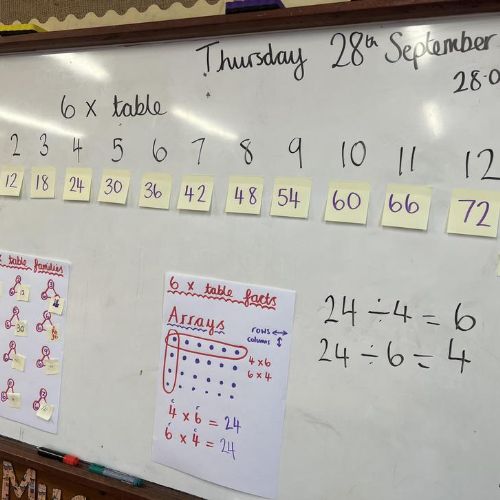 Thursday 28th September
28.0
6 x table
2 3 4 5 6 7 8 9 10 11 12
12 18 24 30 36 42 48 54 60 66 72
table families
6 x table facts
Arrays
rows ↔
columns ↕
4 x 6
6 x 4
4 x 6 = 24
6 x 4 = 24
24 ÷ 4 = 6
24 ÷ 6 = 4